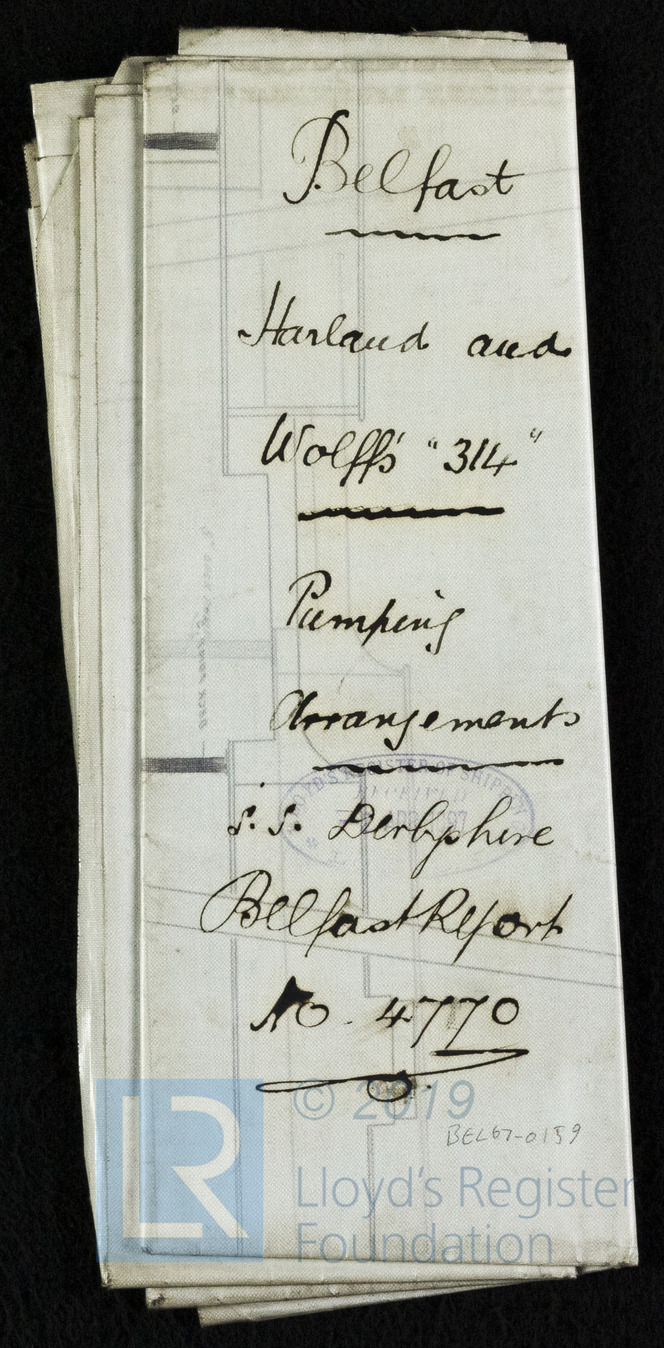 Belfast
Harland and
Wolff's "314"
Pumping
Arrangements
LLOYD'S REGISTER OF SHIPPING
RECEIVED
S.S. Derbyshire
Belfast Report
No. 4770
© 2019
BEL67-0159
LR
Lloyd's Register
Foundation